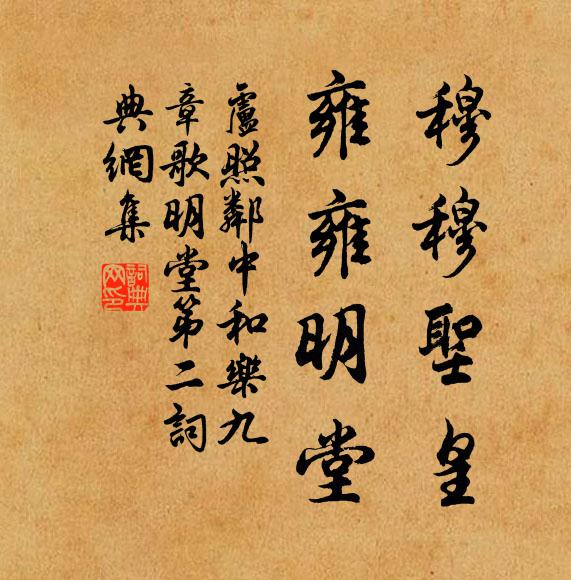 穆穆聖皇
雍雍明堂
盧照鄰中和樂九
章歌明堂第二詞
典網集
詞典網印